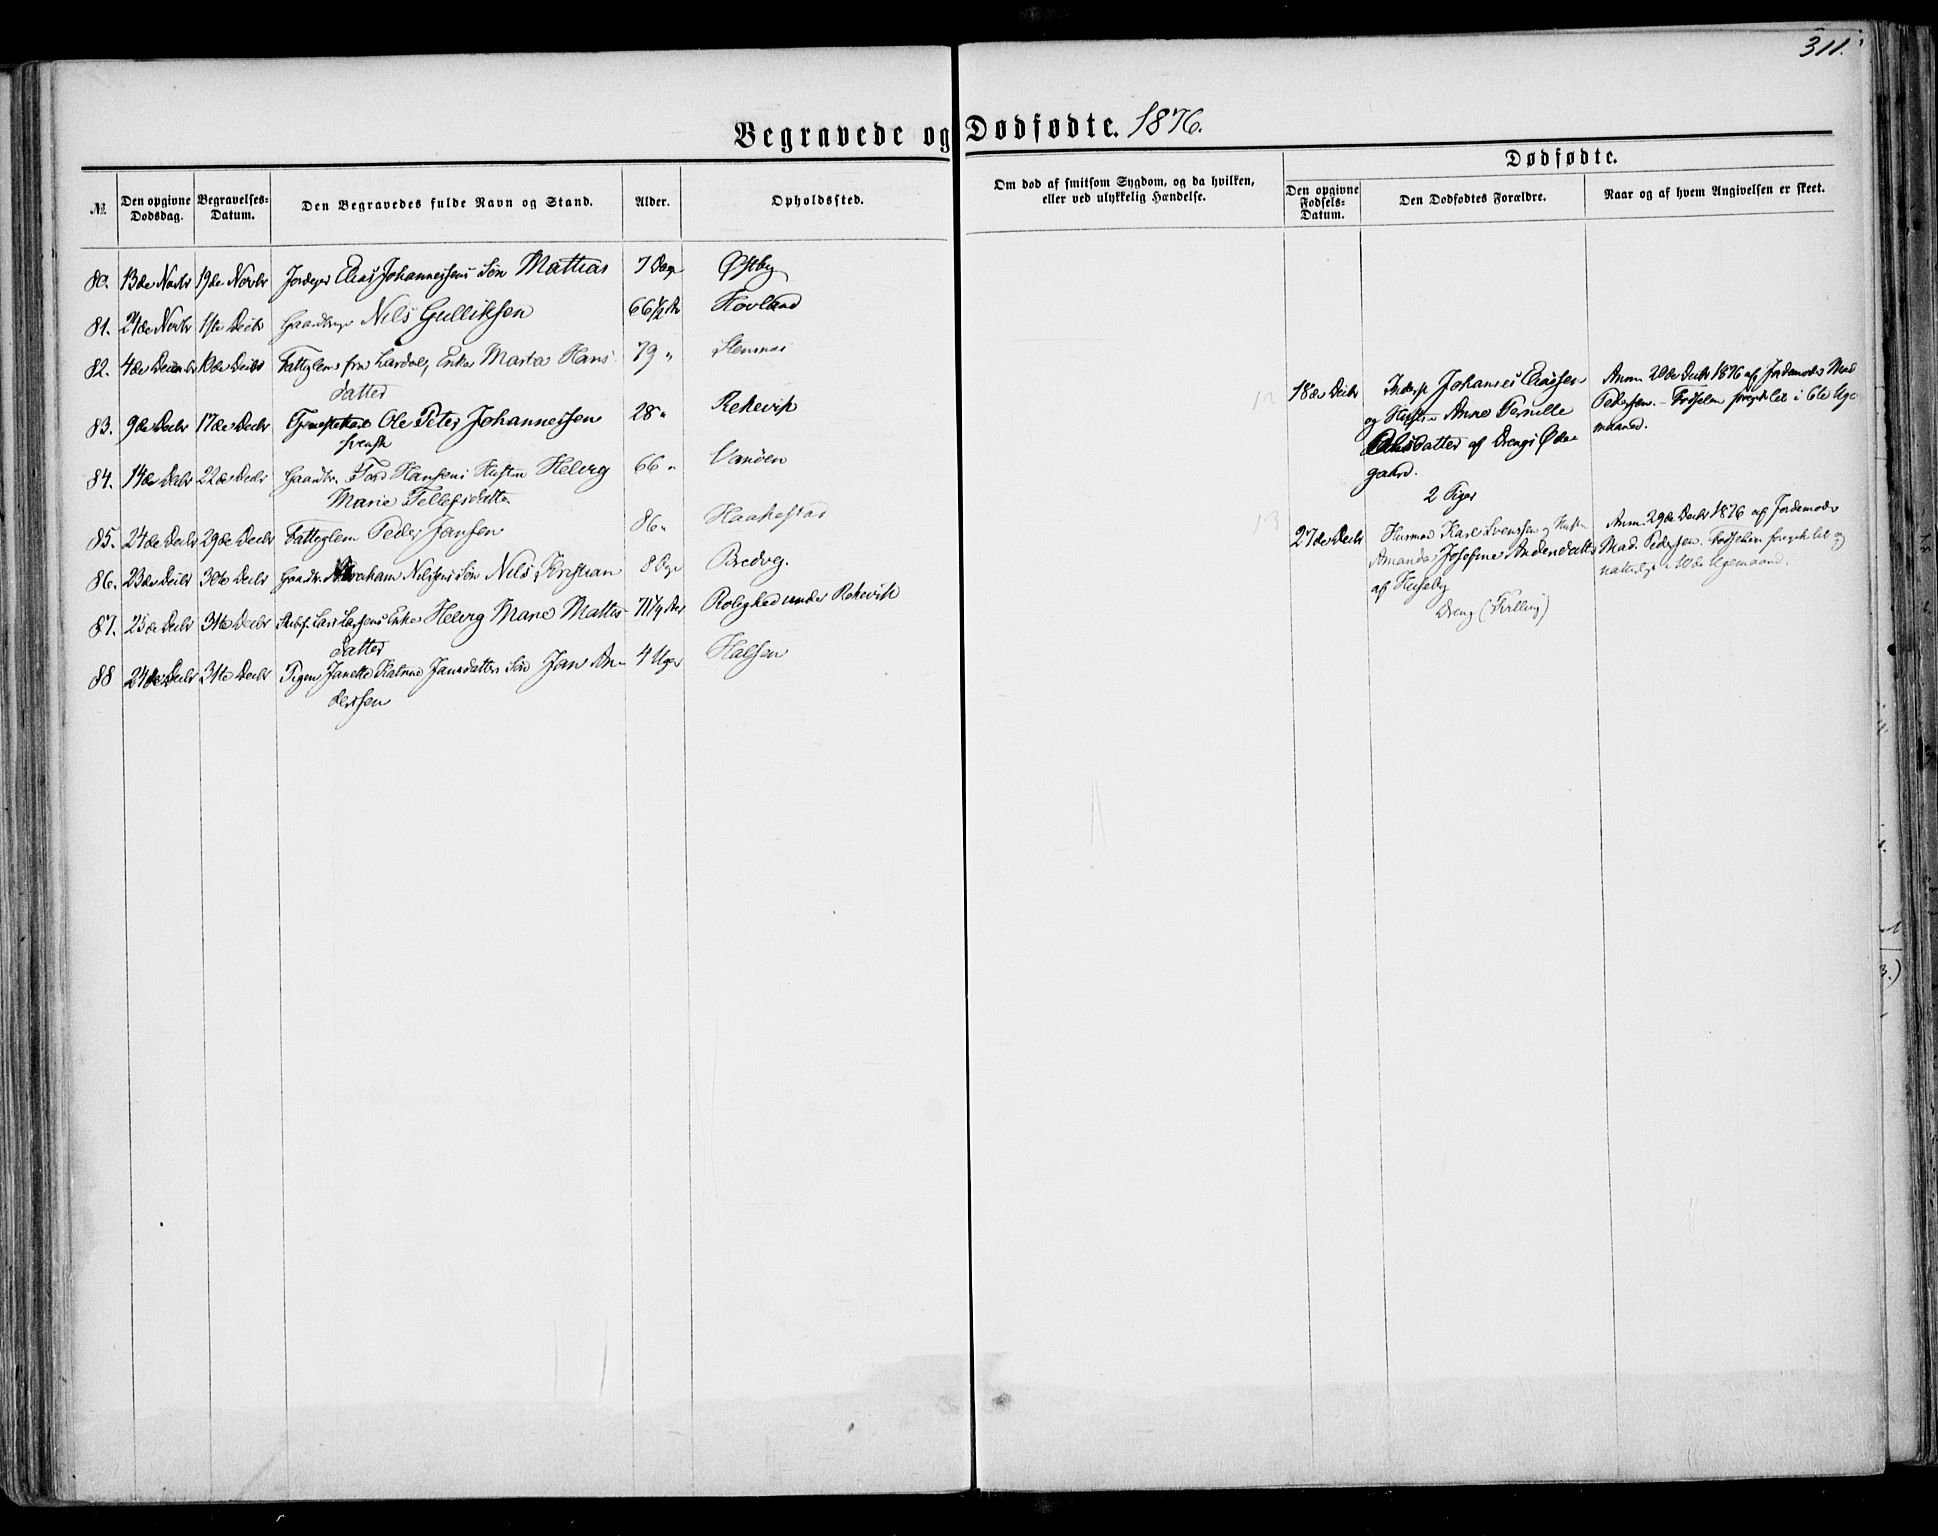 311.
Begravede og Dødfødte. 1876.
Dødfødte.
№
Den opgivne Dødsdag.
Begravelses-Datum.
Den Begravedes fulde Navn og Stand.
Alder.
Opholdssted.
Om død af smitsom Sygdom, og da hvilken, eller ved ulykkelig Hændelse.
Den opgivne Fødsels-Datum.
Den Dødfødtes Forældre.
Naar og af hvem Angivelsen er skeet.
80. 13de Novbr 19de Novbr Elias Johannessens Søn Mathias 7 Dage Østby
81. 24de Novbr 1ste Decbr Gaardbr Nils Gulliksen 66 1/2 Aar Hovland
82. 4de Decembr 10de Decbr Fattiglem fra Lardal, Enke Marta Hans 79 "
datter
83. 9de Decbr 17de Decbr Ole Peter Johannessen 28 " Rekevik
svensk
84. 14de Decbr 22de Decbr Gaardbr. Hansens Hustru Helvig 66 "
Marie Tellefsdatter
85. 24de Decbr 29de Decbr Fattiglem Peder Jansen 86 " Haakestad
86. 23de Decbr 30te Decbr Gaardbr. Abraham Nilsens Søn Nils Kristian 8 Dge Bredveg.
87. 25de Decbr 31te Decbr Lars Larsens Enke Helvig Marie Mattis- 71 1/4 Aar Rolighed under Rekevik
datter
88 24de Decbr 31te Decbr Pigen Janette Katrine Jansdatters Søn Jan An- 4 Uger Halsen
derssen
12 18de Decbr Inderst Johannes Eliassen
og Hustru Anne Pernille
datter af Drengs Øde-
gaard.
2 Piger
Anm. 20de Decbr 1876 af Jordemoder Mad
Pedersen. - Fødselen foregik let i 6te Uge
maaned.
13 27de Decbr Husmd Karl Svenssen og Hustru
Amanda Josefine Andersdatter
af Huseby
Dreng (Tvilling)
Anm. 29de Decbr 1876 af Jordemoder
Mad. Pedersen. Fødselen foregik let og
naturligt i 10de Ugemaaned.